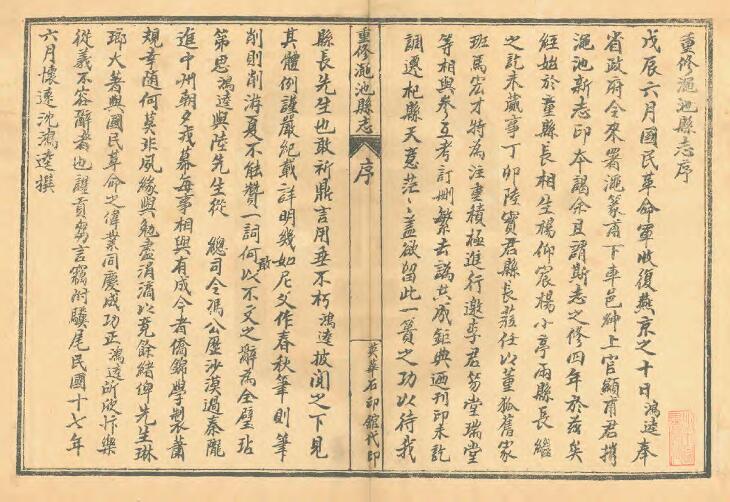 重修澠池縣志序
戊辰六月國民革命軍收復燕京之十日鴻逵奉
省政府令來署澠篆甫下車邑紳上官顯甫君攜
澠池新志印本謁余且謂斯志之修四年於茲矣
經始於董縣長相生楊仰宸楊小亭兩縣長繼
之訖未蕆事丁卯陸賓君縣長蒞任以董狐舊家
班馬宏才特為注重積極進行邀李君芴堂瑞堂
等相與參互考訂刪繁去譌共成鉅典迺刊印未訖
調遷杞縣天意茫茫蓋欲留此一簣之功以待我
重修澠池縣志
序
英華石印館代印
縣長先生也敢祈鼎言用垂不朽鴻逵披閱之下見
其體例謹嚴紀載詳明幾如尼父作春秋筆則筆
削則削游夏不能贊一詞何敢以不文之辭為全璧玷
第思鴻逵與陸先生從 總司令馮公歷沙漠過秦隴
進中州朝夕戎幕每事相與有成今者僑錦學製蕭
規幸隨何莫非夙緣與勉盡涓滴以竟餘緒俾先生琳
瑯大著與國民革命之偉業同慶成功正鴻逵所欣忭樂
從義不容辭者也謹貢芻言竊附驥尾民國十七年
六月懷遠沈鴻逵撰